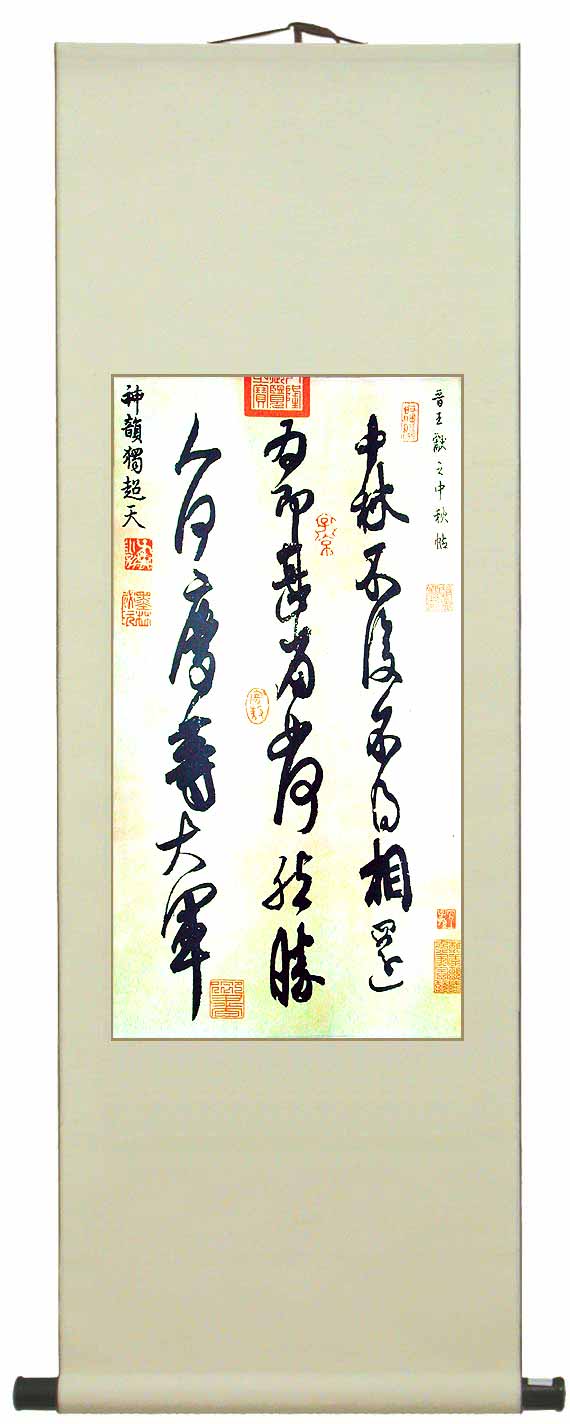 晋王獻之中秋帖
中秋不復不得相還
為即甚省如何然勝
人何慶等大軍
神韻獨超天
子京